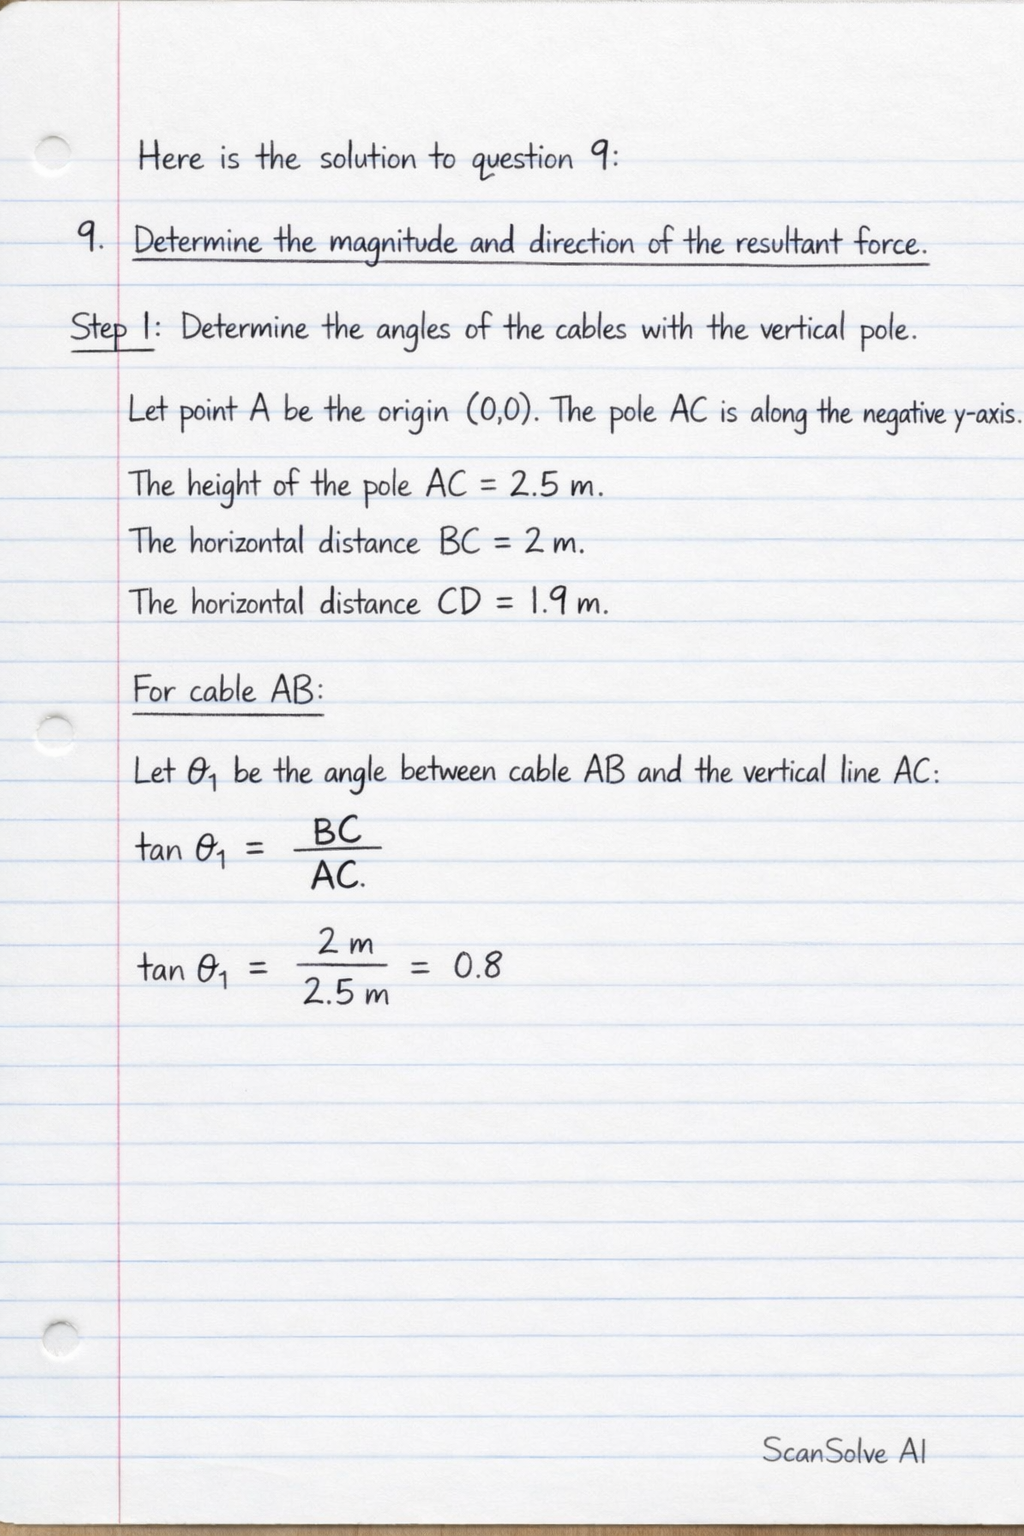 Here is the solution to question 9:
9. Determine the magnitude and direction of the resultant force.
Step 1: Determine the angles of the cables with the vertical pole.
Let point A be the origin (0,0). The pole AC is along the negative y-axis.
The height of the pole AC = 2.5 m.
The horizontal distance BC = 2 m.
The horizontal distance CD = 1.9 m.
For cable AB:
Let θ₁ be the angle between cable AB and the vertical line AC:
tan θ₁ = BC / AC.
tan θ₁ = 2 m / 2.5 m = 0.8
ScanSolve AI